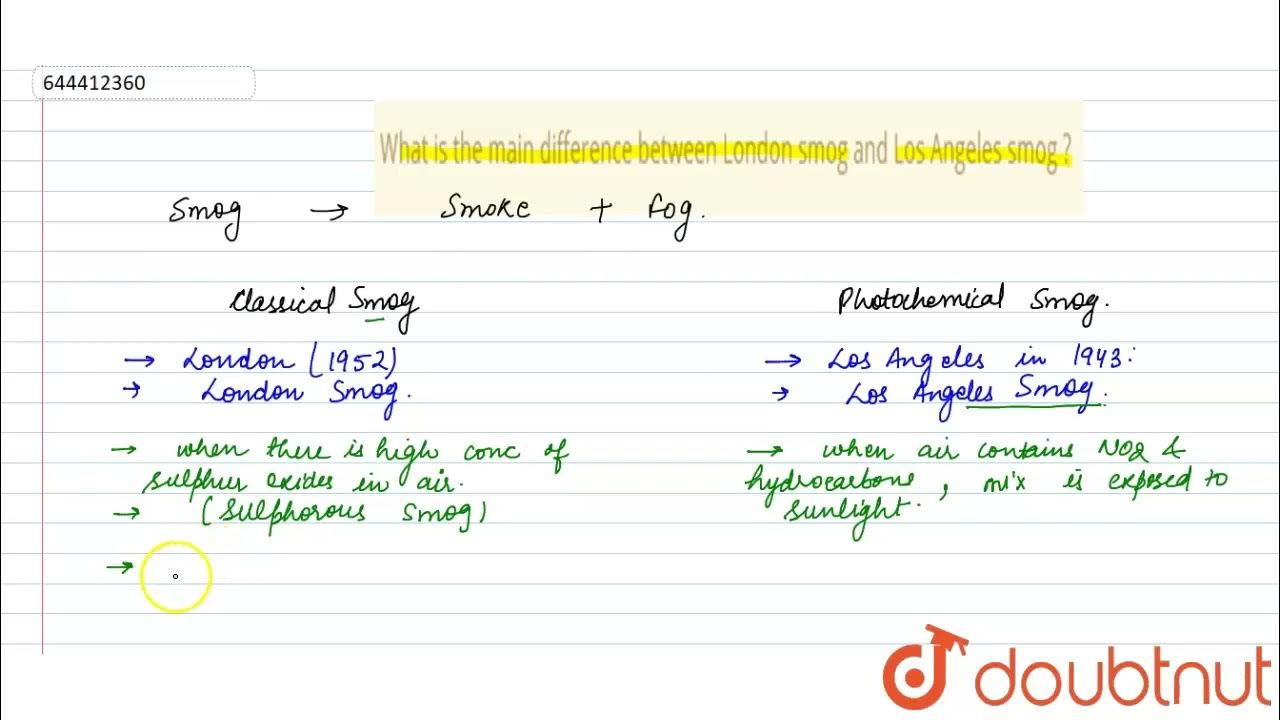 644412360
What is the main difference between London smog and Los Angeles smog ?
Smog → Smoke + fog.
Classical Smog
→ London (1952)
→ London Smog.
→ when there is high conc of
sulphur oxides in air.
→ (Sulphorous smog)
→
Photochemical Smog.
→ Los Angeles in 1943:
→ Los Angeles Smog.
→ when air contains NO2 &
hydrocarbons, mix is exposed to
sunlight.
doubtnut